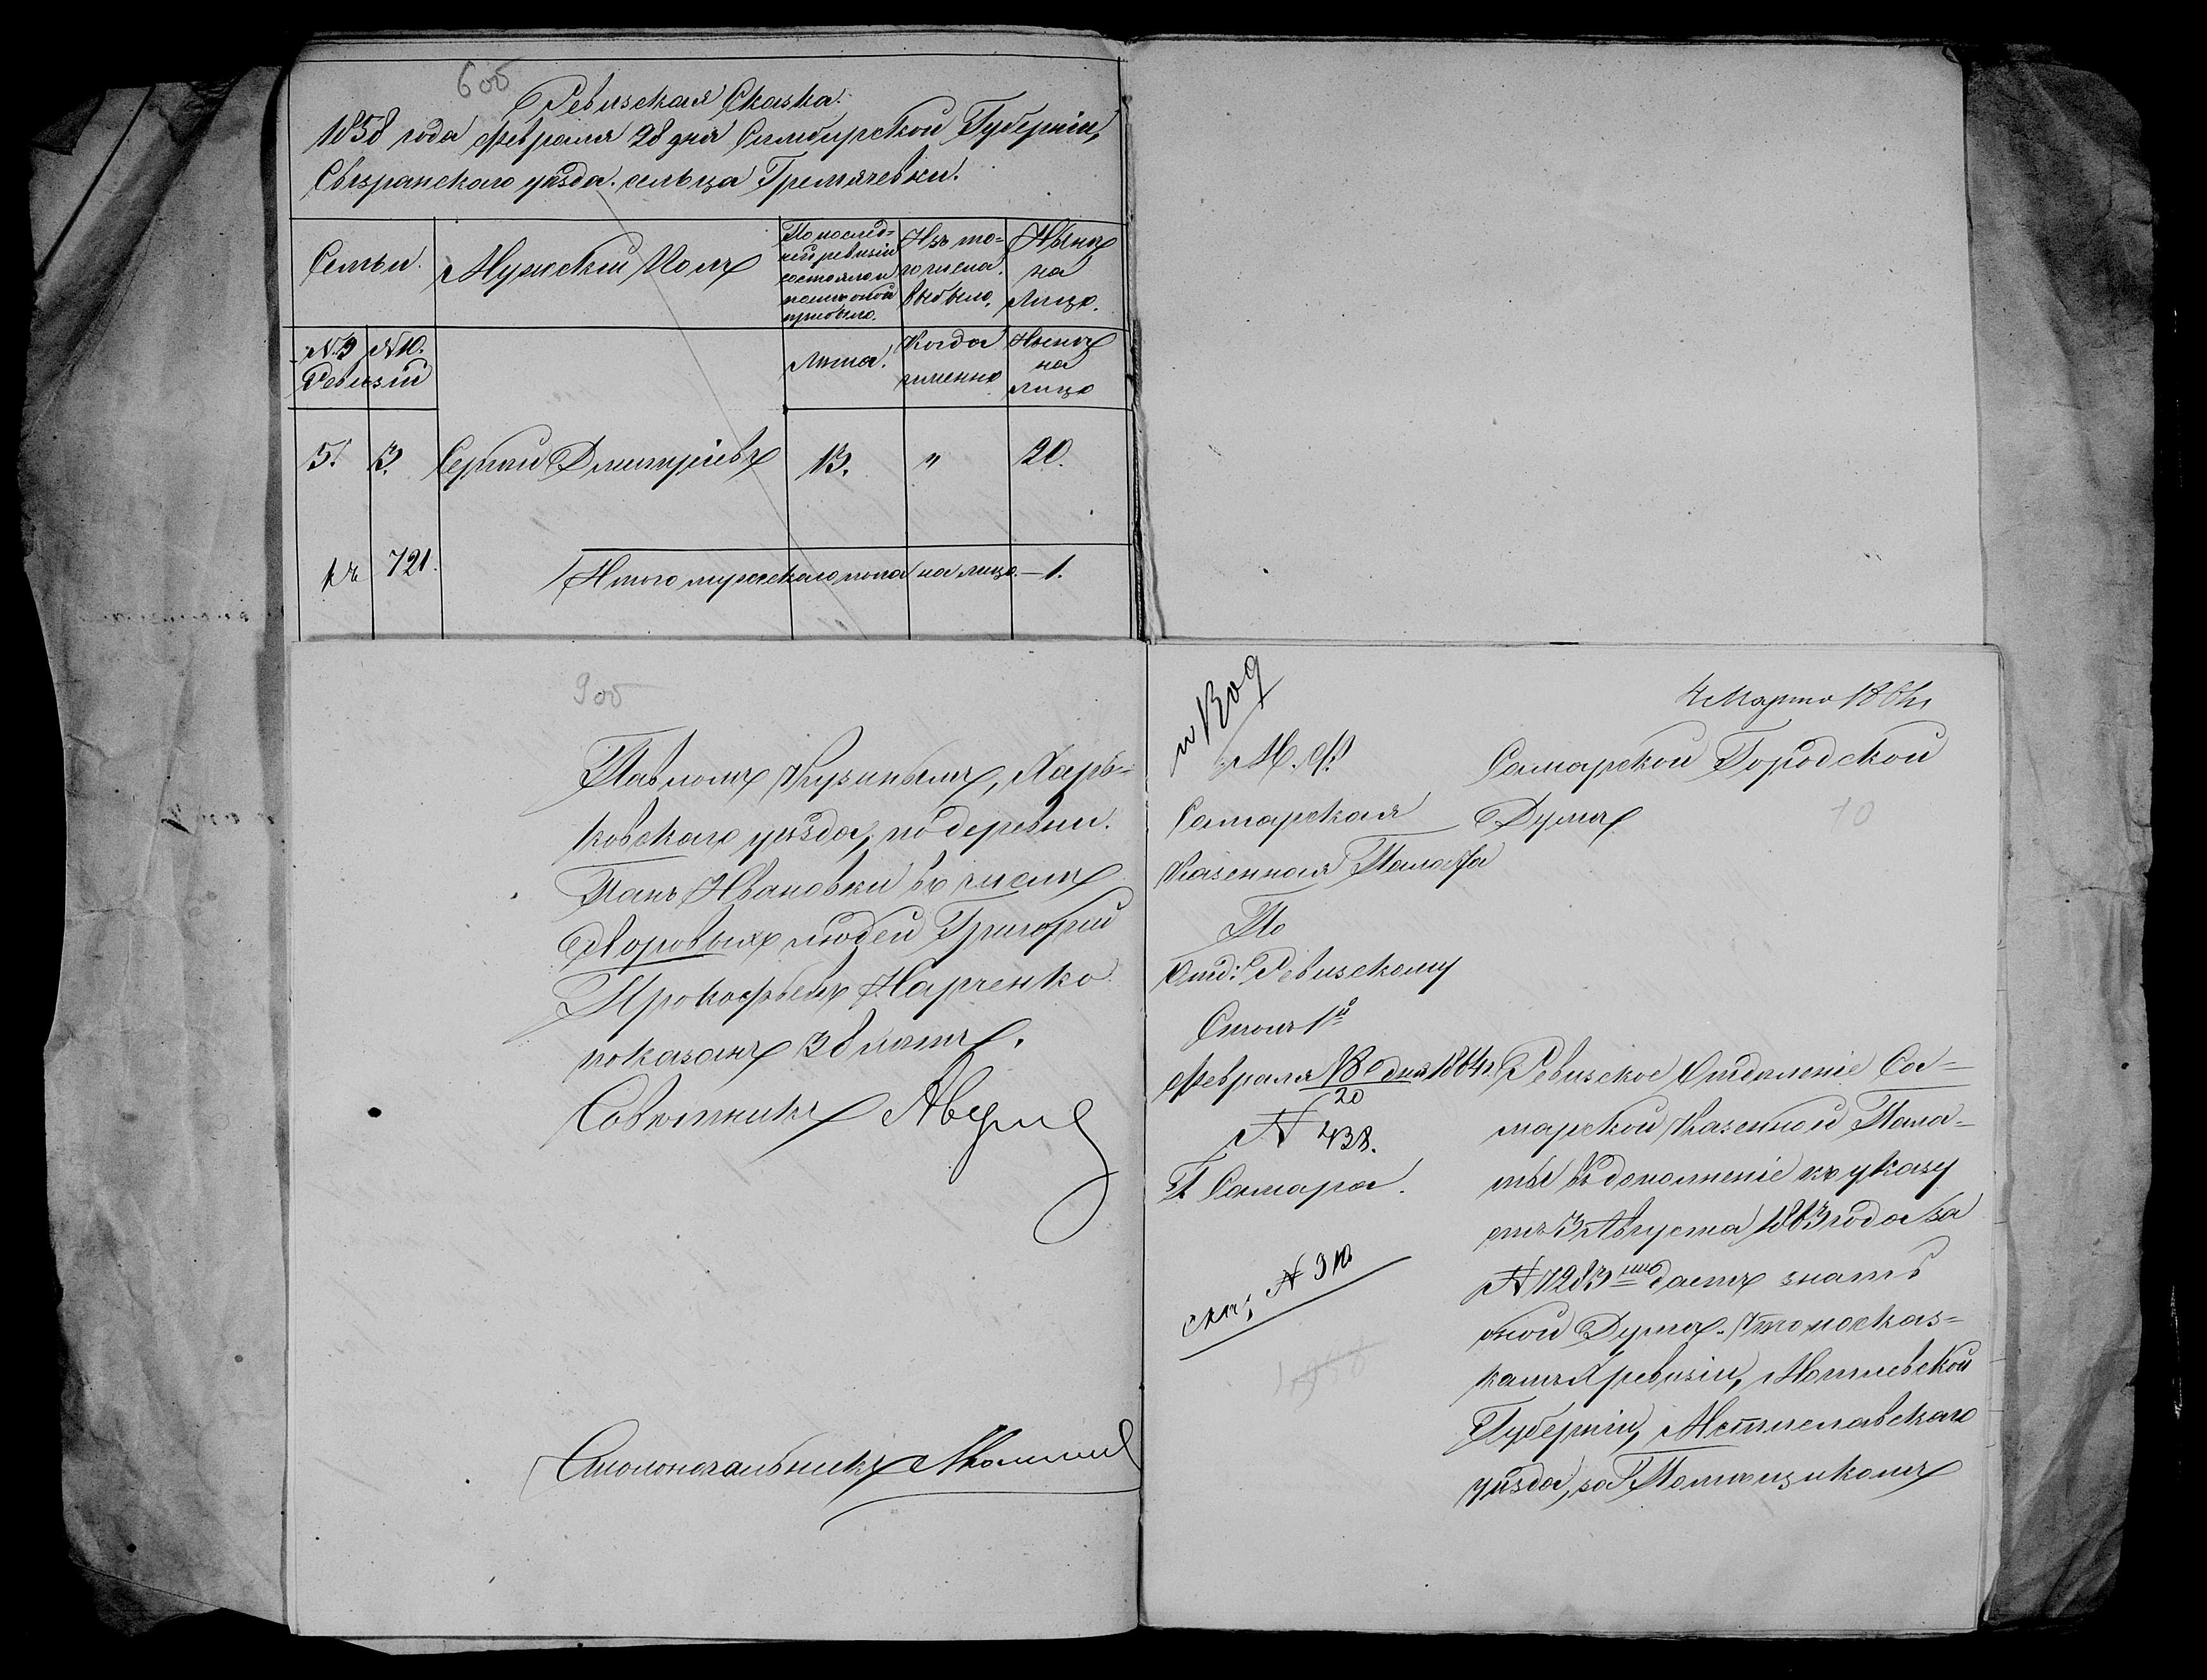 6об
Ревизская Сказка.
1858 года февраля 28 дня Симбирской Губерніи,
Сызранскаго уѣзда. сельца Гремячевки.
Семьи.
Мужскій Полъ
По послѣд=
ней ревизіи
состояло и
послѣ оной
прибыло.
Изъ то=
го числа
выбыло.
Нынѣ
на
Лицо.
№ 9 № 10.
Ревизій
Лѣта.
Когда
именно
Нынѣ
на
лицо
5. 3. Сергѣй Дмитріевъ 13. " 20.
721. Итого мужескаго пола на лицо. — 1.
9об
Павломъ Кузинымъ, Харь=
ковскаго уѣзда, по деревни.
Панъ Ивановки въ числѣ
дворовыхъ людей Григорій
Прокофьевъ Харченко
показанъ 38 лѣтъ.
Совѣтникъ
Столоначальникъ
4 Марта 1864
М. Ф.
Самарская
Казенная Палата
По
Отд: Ревизскому
Столъ 1й
Февраля 18 дня 1864 г.
20
№ 438.
Г. Самара.
Самарской Городской
Думѣ
10
Ревизское Отдѣленіе Са=
марской Казенной Пала=
ты въ дополненіе къ указу
отъ 3 Августа 1863 года за
№ 7283мъ даетъ знать
оной Думѣ. Что по сказ=
камъ X ревизіи, Могилевской
Губерніи, Мстиславскаго
уѣзда, за Помѣщикомъ